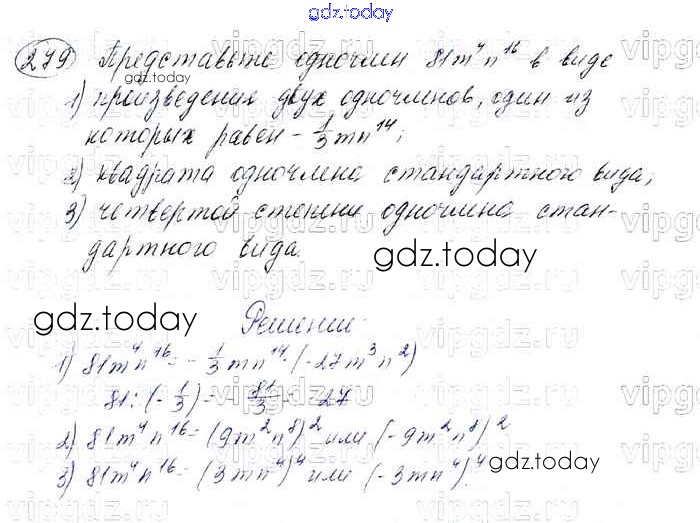 gdz.today
279 Представьте одночлен 81m⁴n¹⁶ в виде
gdz.today
1) произведения двух одночленов, один из
которых равен - 1/3 mn¹⁴;
2) квадрата одночлена стандартного вида;
3) четвертой степени одночлена стан-
дартного вида.
gdz.today
gdz.today
Решение.
1) 81m⁴n¹⁶ = - 1/3 mn¹⁴ · (-27m³n²)
81 : (- 1/3) = - 81/3 = - 27
2) 81m⁴n¹⁶ = (9m²n⁸)² или (-9m²n⁸)²
3) 81m⁴n¹⁶ = (3mn⁴)⁴ или (-3mn⁴)⁴.
gdz.today